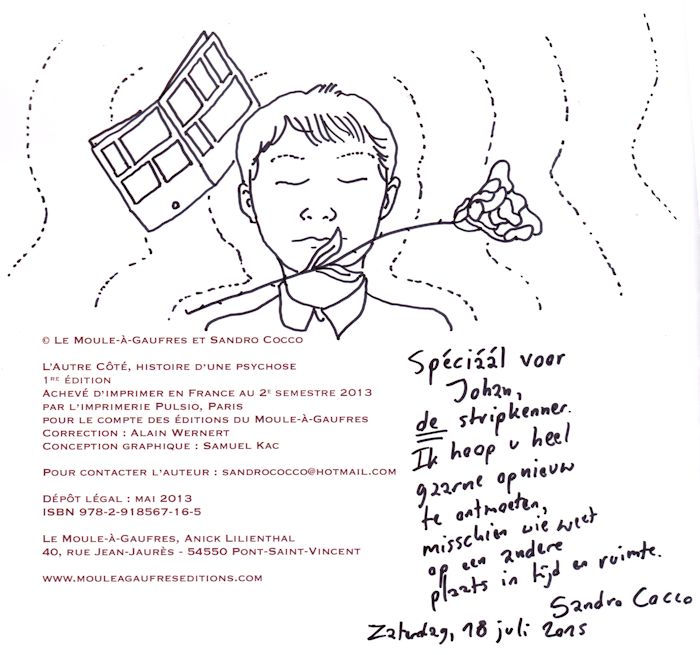 © Le Moule-à-Gaufres et Sandro Cocco
L'Autre Côté, histoire d'une psychose
1re édition
Achevé d'imprimer en France au 2e semestre 2013
par l'imprimerie Pulsio, Paris
pour le compte des éditions du Moule-à-Gaufres
Correction : Alain Wernert
Conception graphique : Samuel Kac
Pour contacter l'auteur : sandrococco@hotmail.com
Dépôt légal : mai 2013
ISBN 978-2-918567-16-5
Le Moule-à-Gaufres, Anick Lilienthal
40, rue Jean-Jaurès - 54550 Pont-Saint-Vincent
www.mouleagaufreseditions.com
Spéciáál voor
Johan,
de stripkenner.
Ik hoop u heel
gaarne opnieuw
te ontmoeten,
misschien wie weet
op een andere
plaats in tijd en ruimte.
Sandro Cocco
Zaterdag, 18 juli 2015